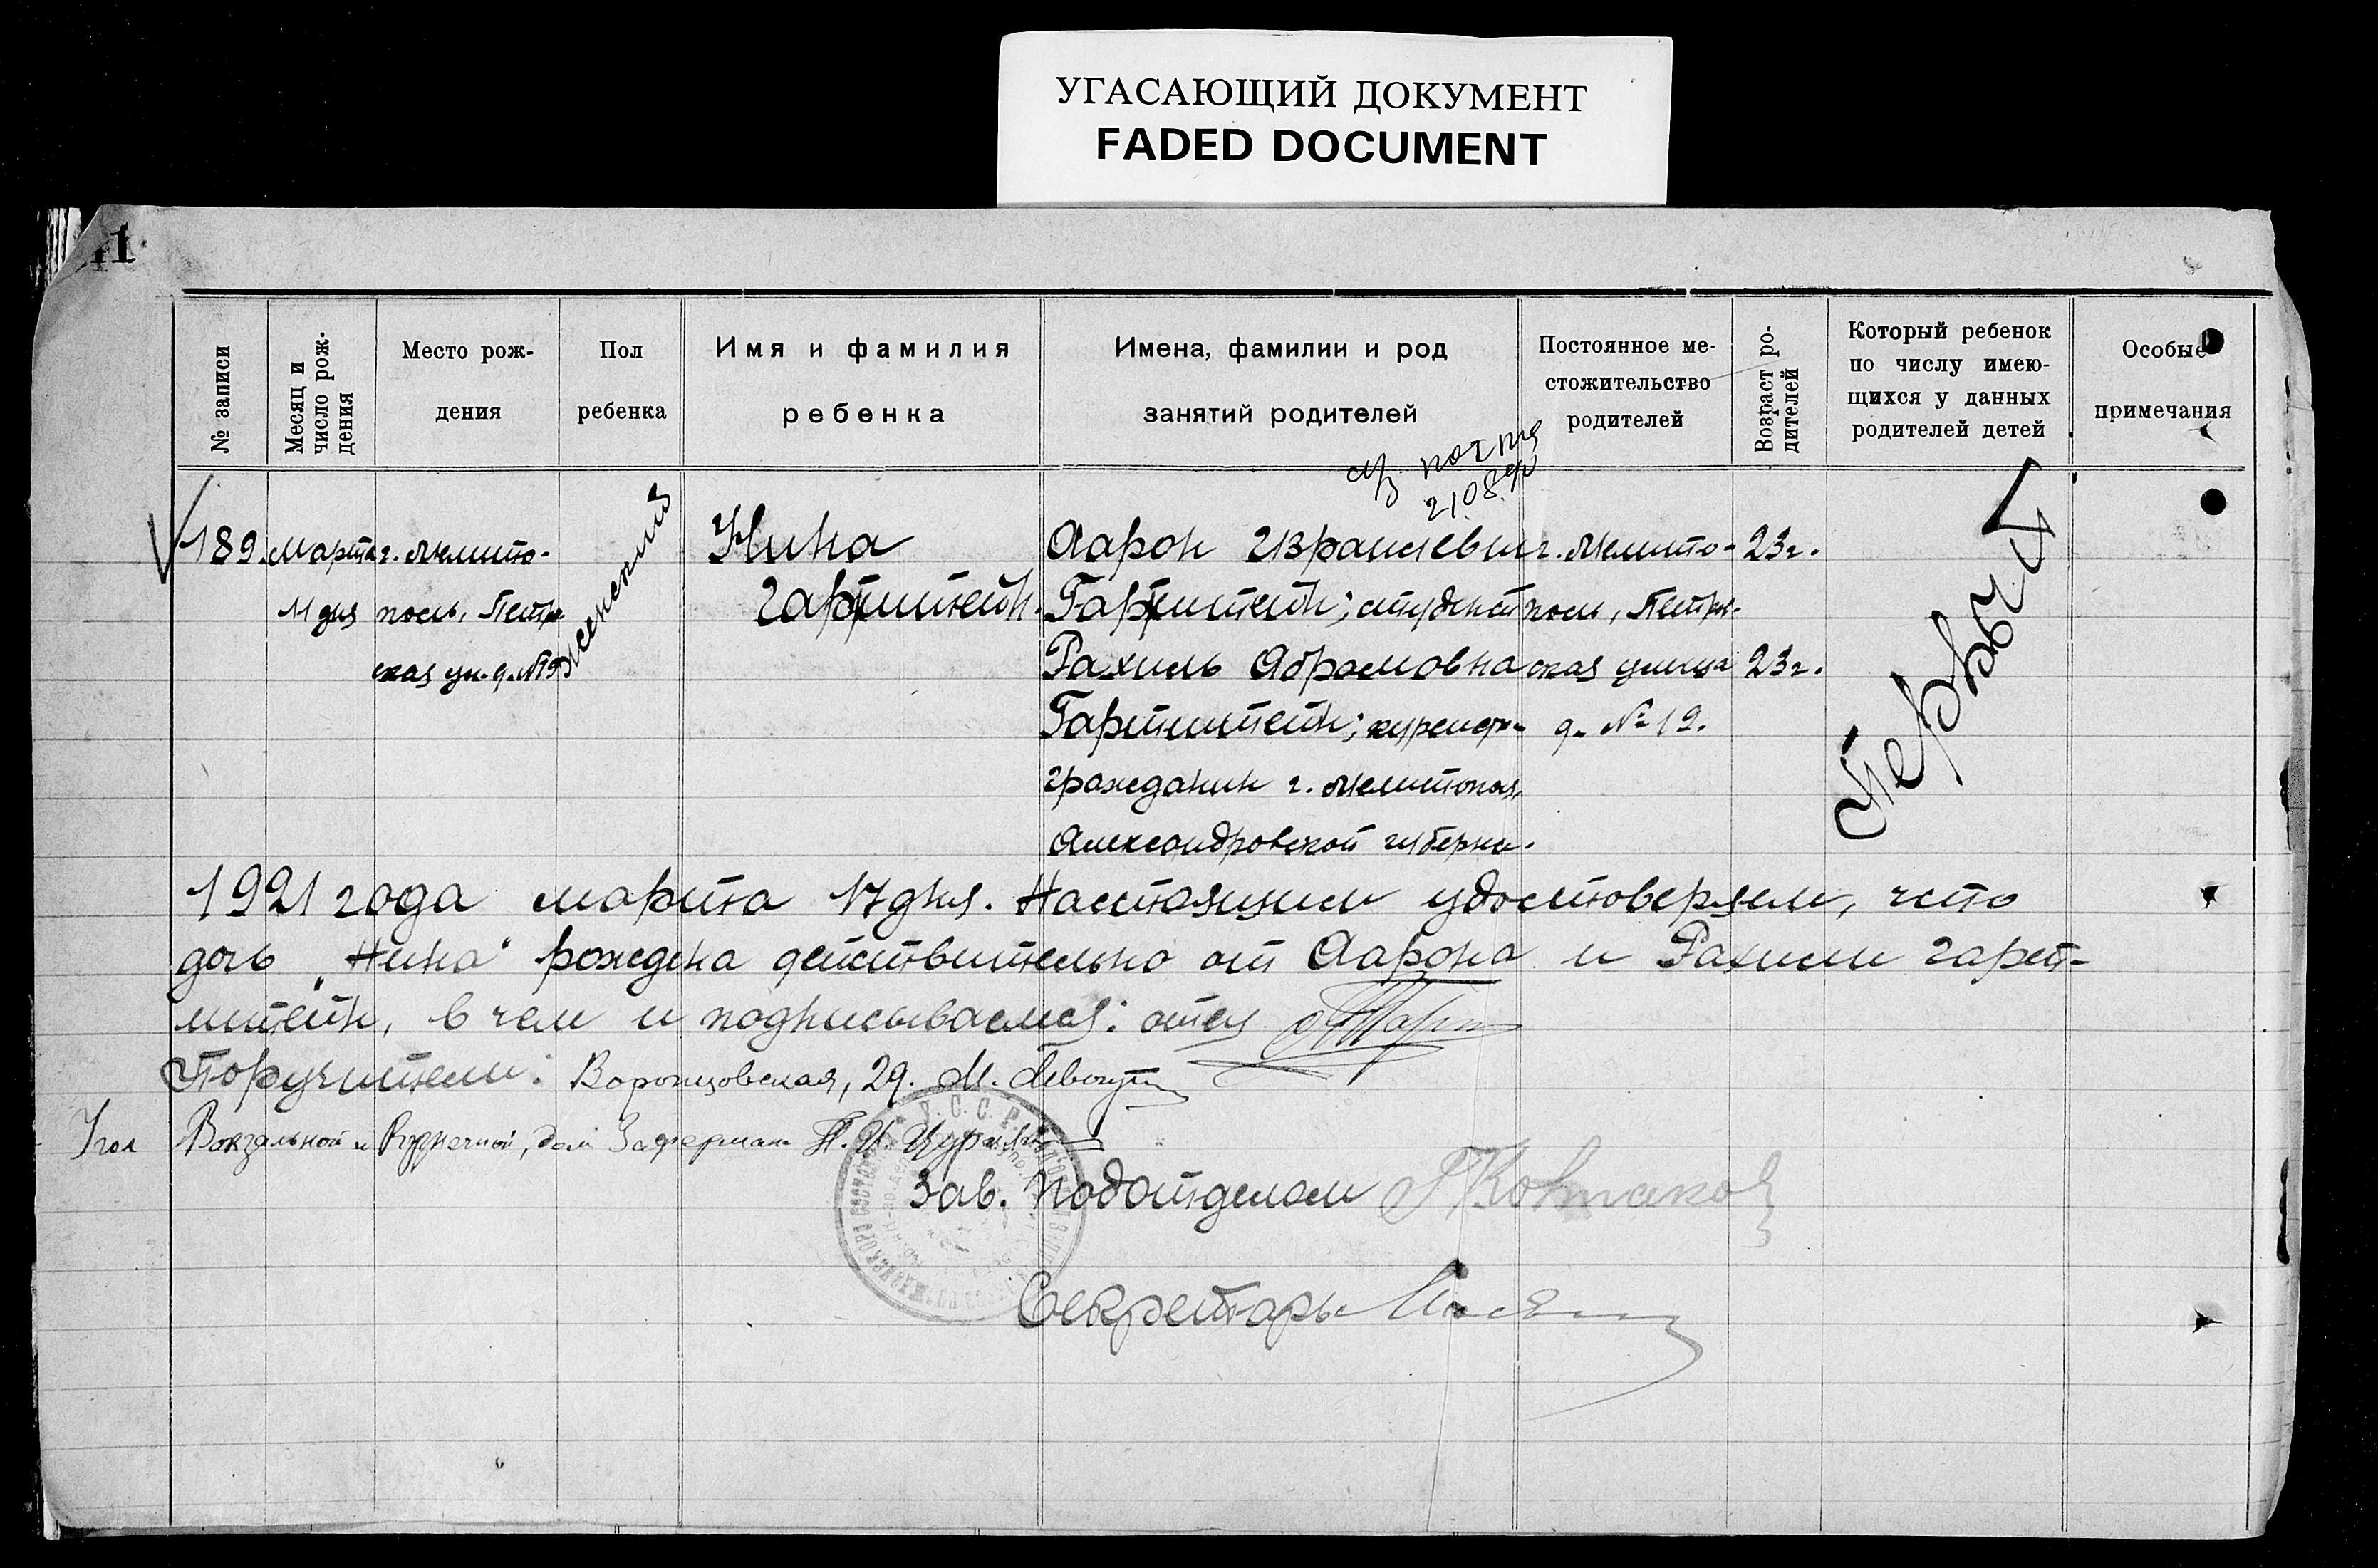 УГАСАЮЩИЙ ДОКУМЕНТ
FADED DOCUMENT
41
№ записи
Месяц и число рождения
Место рож-
дения
Пол
ребенка
Имя и фамилия
ребенка
Имена, фамилии и род
занятий родителей
Постоянное ме-
стожительство
родителей
Возраст ро-
дителей
Который ребенок
по числу имею-
щихся у данных
родителей детей
Особые
примечания
189.
марта
11 дня
г. Мелито-
поль, Петро
ская ул. д. №19
женский
Нина
Гартштейн.
Аарон Израилевич
Гартштейн; студент
Рахиль Абрамовна
Гартштейн; курсист-
гражданин г. Мелитополя,
Александровской губерни.
г. Мелито-
поль, Петро-
ская улица
д. № 19.
23г.
23г.
Первый
1921 года марта 17 дня. Настоящим удостоверяем, что
дочь „Нина“ рождена действительно от Аарона и Рахили Гарт-
штейн, в чем и подписываемся: отец
Поручители: Воронцовская, 29. М.
Угол Вокзальной и Кузнечной, дом
Зав. Подотделом
Секретарь